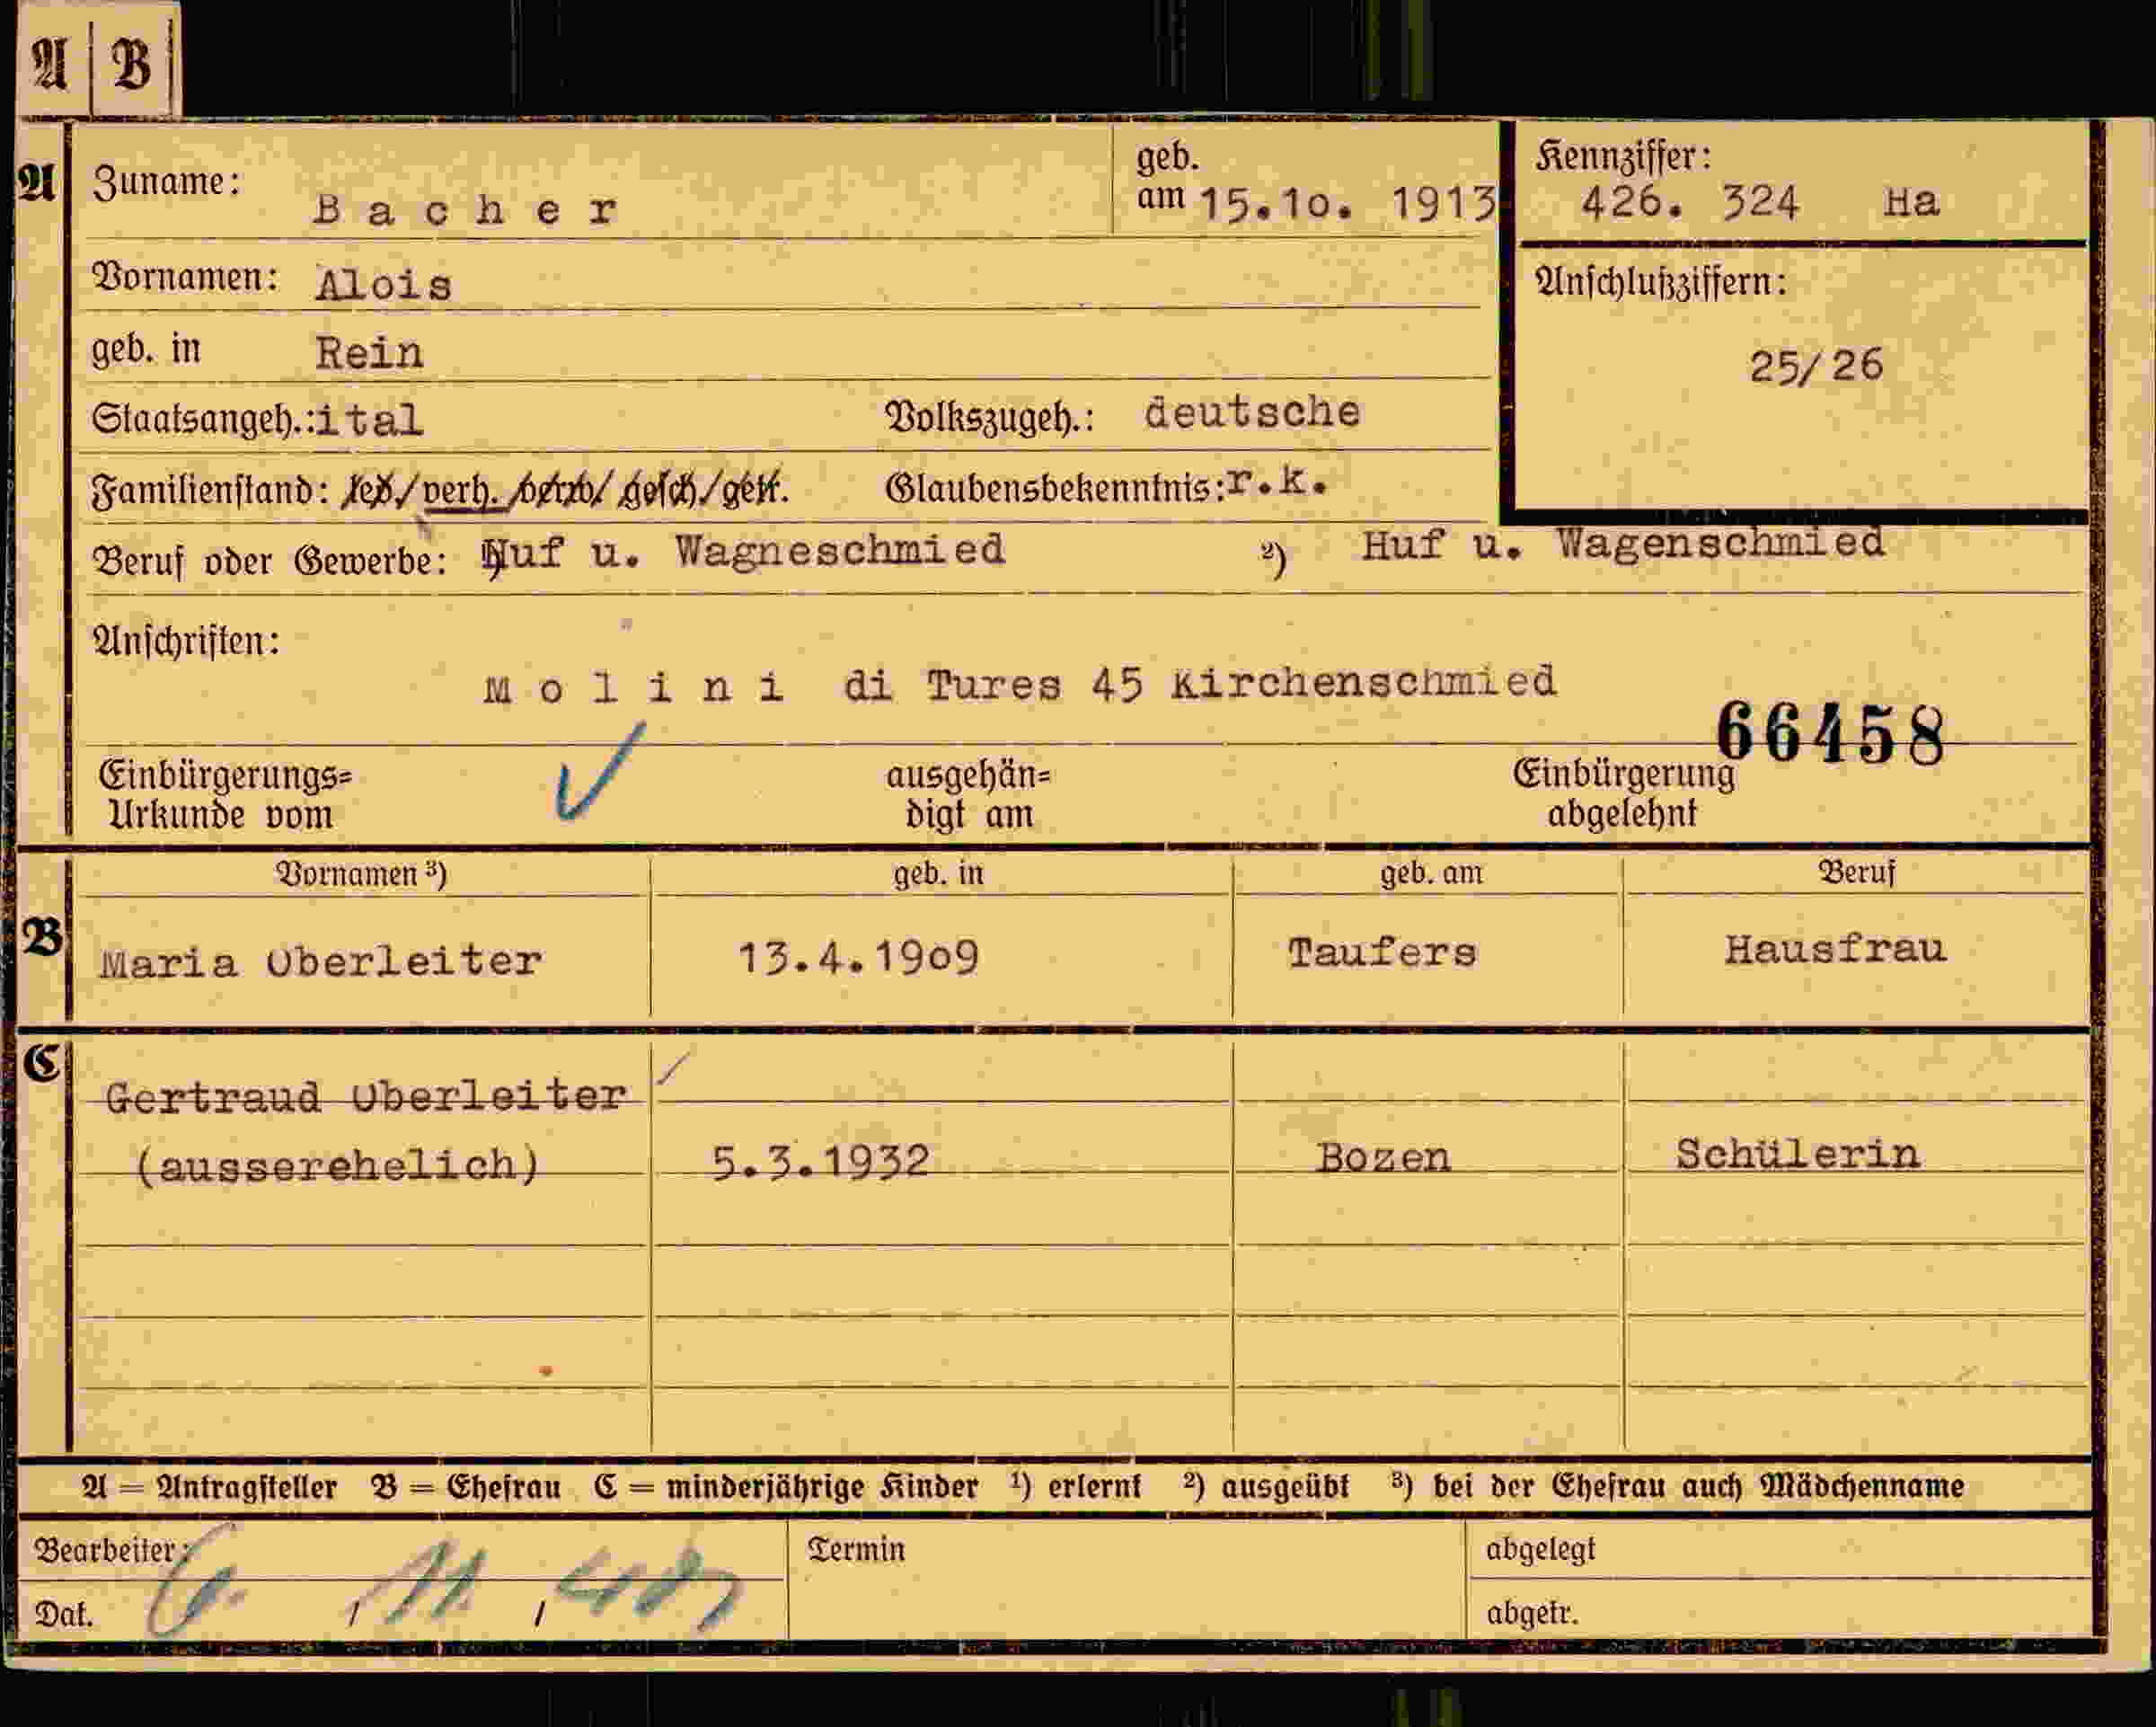 A B
A Zuname: Bacher geb. am 15.10. 1913 Kennziffer: 426. 324 Ha
Vornamen: Alois Anschlußziffern:
geb. in Rein 25/26
Staatsangeh.: ital Volkszugeh.: deutsche
Familienstand: led/verh./verw/gesch/getr. Glaubensbekenntnis: r.k.
Beruf oder Gewerbe: Huf u. Wagneschmied ²) Huf u. Wagenschmied
Anschriften:
Molini di Tures 45 Kirchenschmied
66458
Einbürgerungs= ausgehän= Einbürgerung
Urkunde vom digt am abgelehnt
Vornamen ³) geb. in geb. am Beruf
B Maria Oberleiter 13.4.1909 Taufers Hausfrau
C Gertraud Oberleiter
(ausserehelich) 5.3.1932 Bozen Schülerin
A = Antragsteller B = Ehefrau C = minderjährige Kinder ¹) erlernt ²) ausgeübt ³) bei der Ehefrau auch Mädchenname
Bearbeiter: Termin abgelegt
Dat. abgetr.